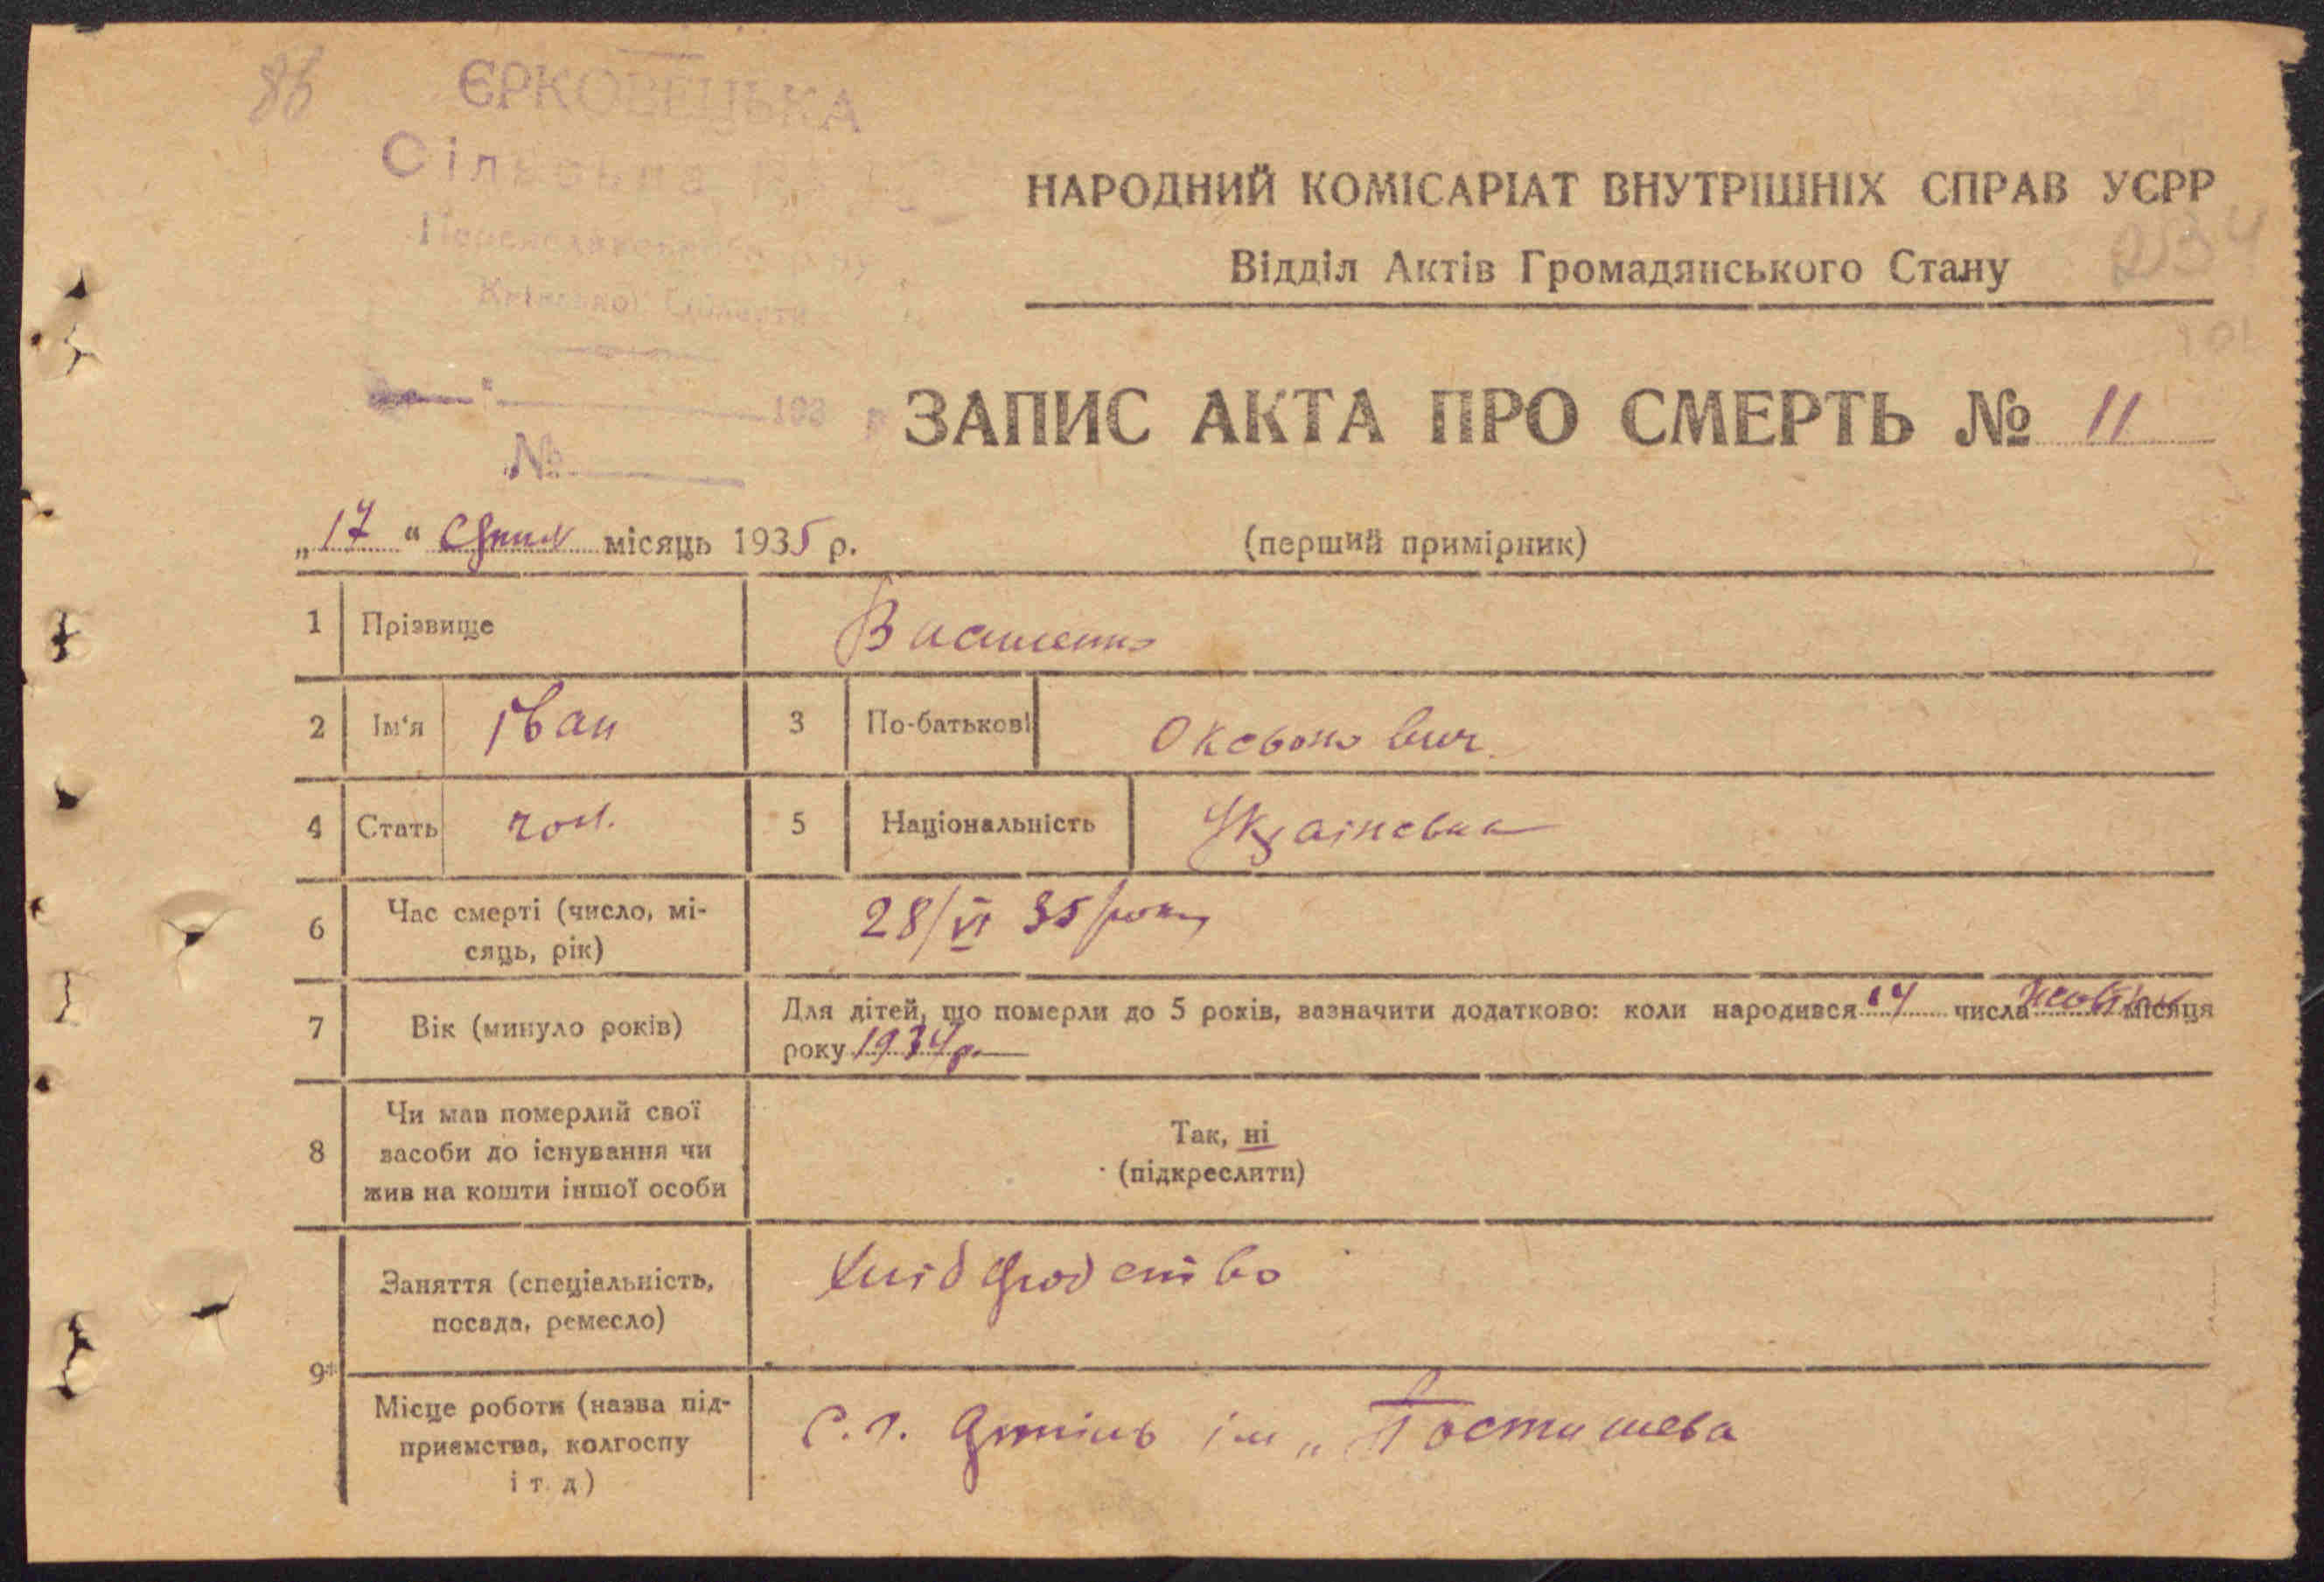 86
ЄРКОВЕЦЬКА
Сільська
Переяславського
Київської Області
193 р
№
НАРОДНИЙ КОМІСАРІАТ ВНУТРІШНІХ СПРАВ УСРР
Відділ Актів Громадянського Стану
234
101
ЗАПИС АКТА ПРО СМЕРТЬ № 11
„17“ місяць 1935 р.
(перший примірник)
1 Прізвище Васшенко
2 Ім'я Іван 3 По-батькові
4 Стать чол. 5 Національність
6 Час смерті (число, мі-
сяць, рік) 28/VI 35 року
7 Вік (минуло років) Для дітей, що померли до 5 років, зазначити додатково: коли народився 14 числа місяця
року 1934 р.
8 Чи мав померлий свої
засоби до існування чи
жив на кошти іншої особи
Так, ні
(підкреслити)
9* Заняття (спеціальність,
посада, ремесло) хлібородство
Місце роботи (назва під-
приємства, колгоспу
і т. д) С.г. артіль ім „Постишева